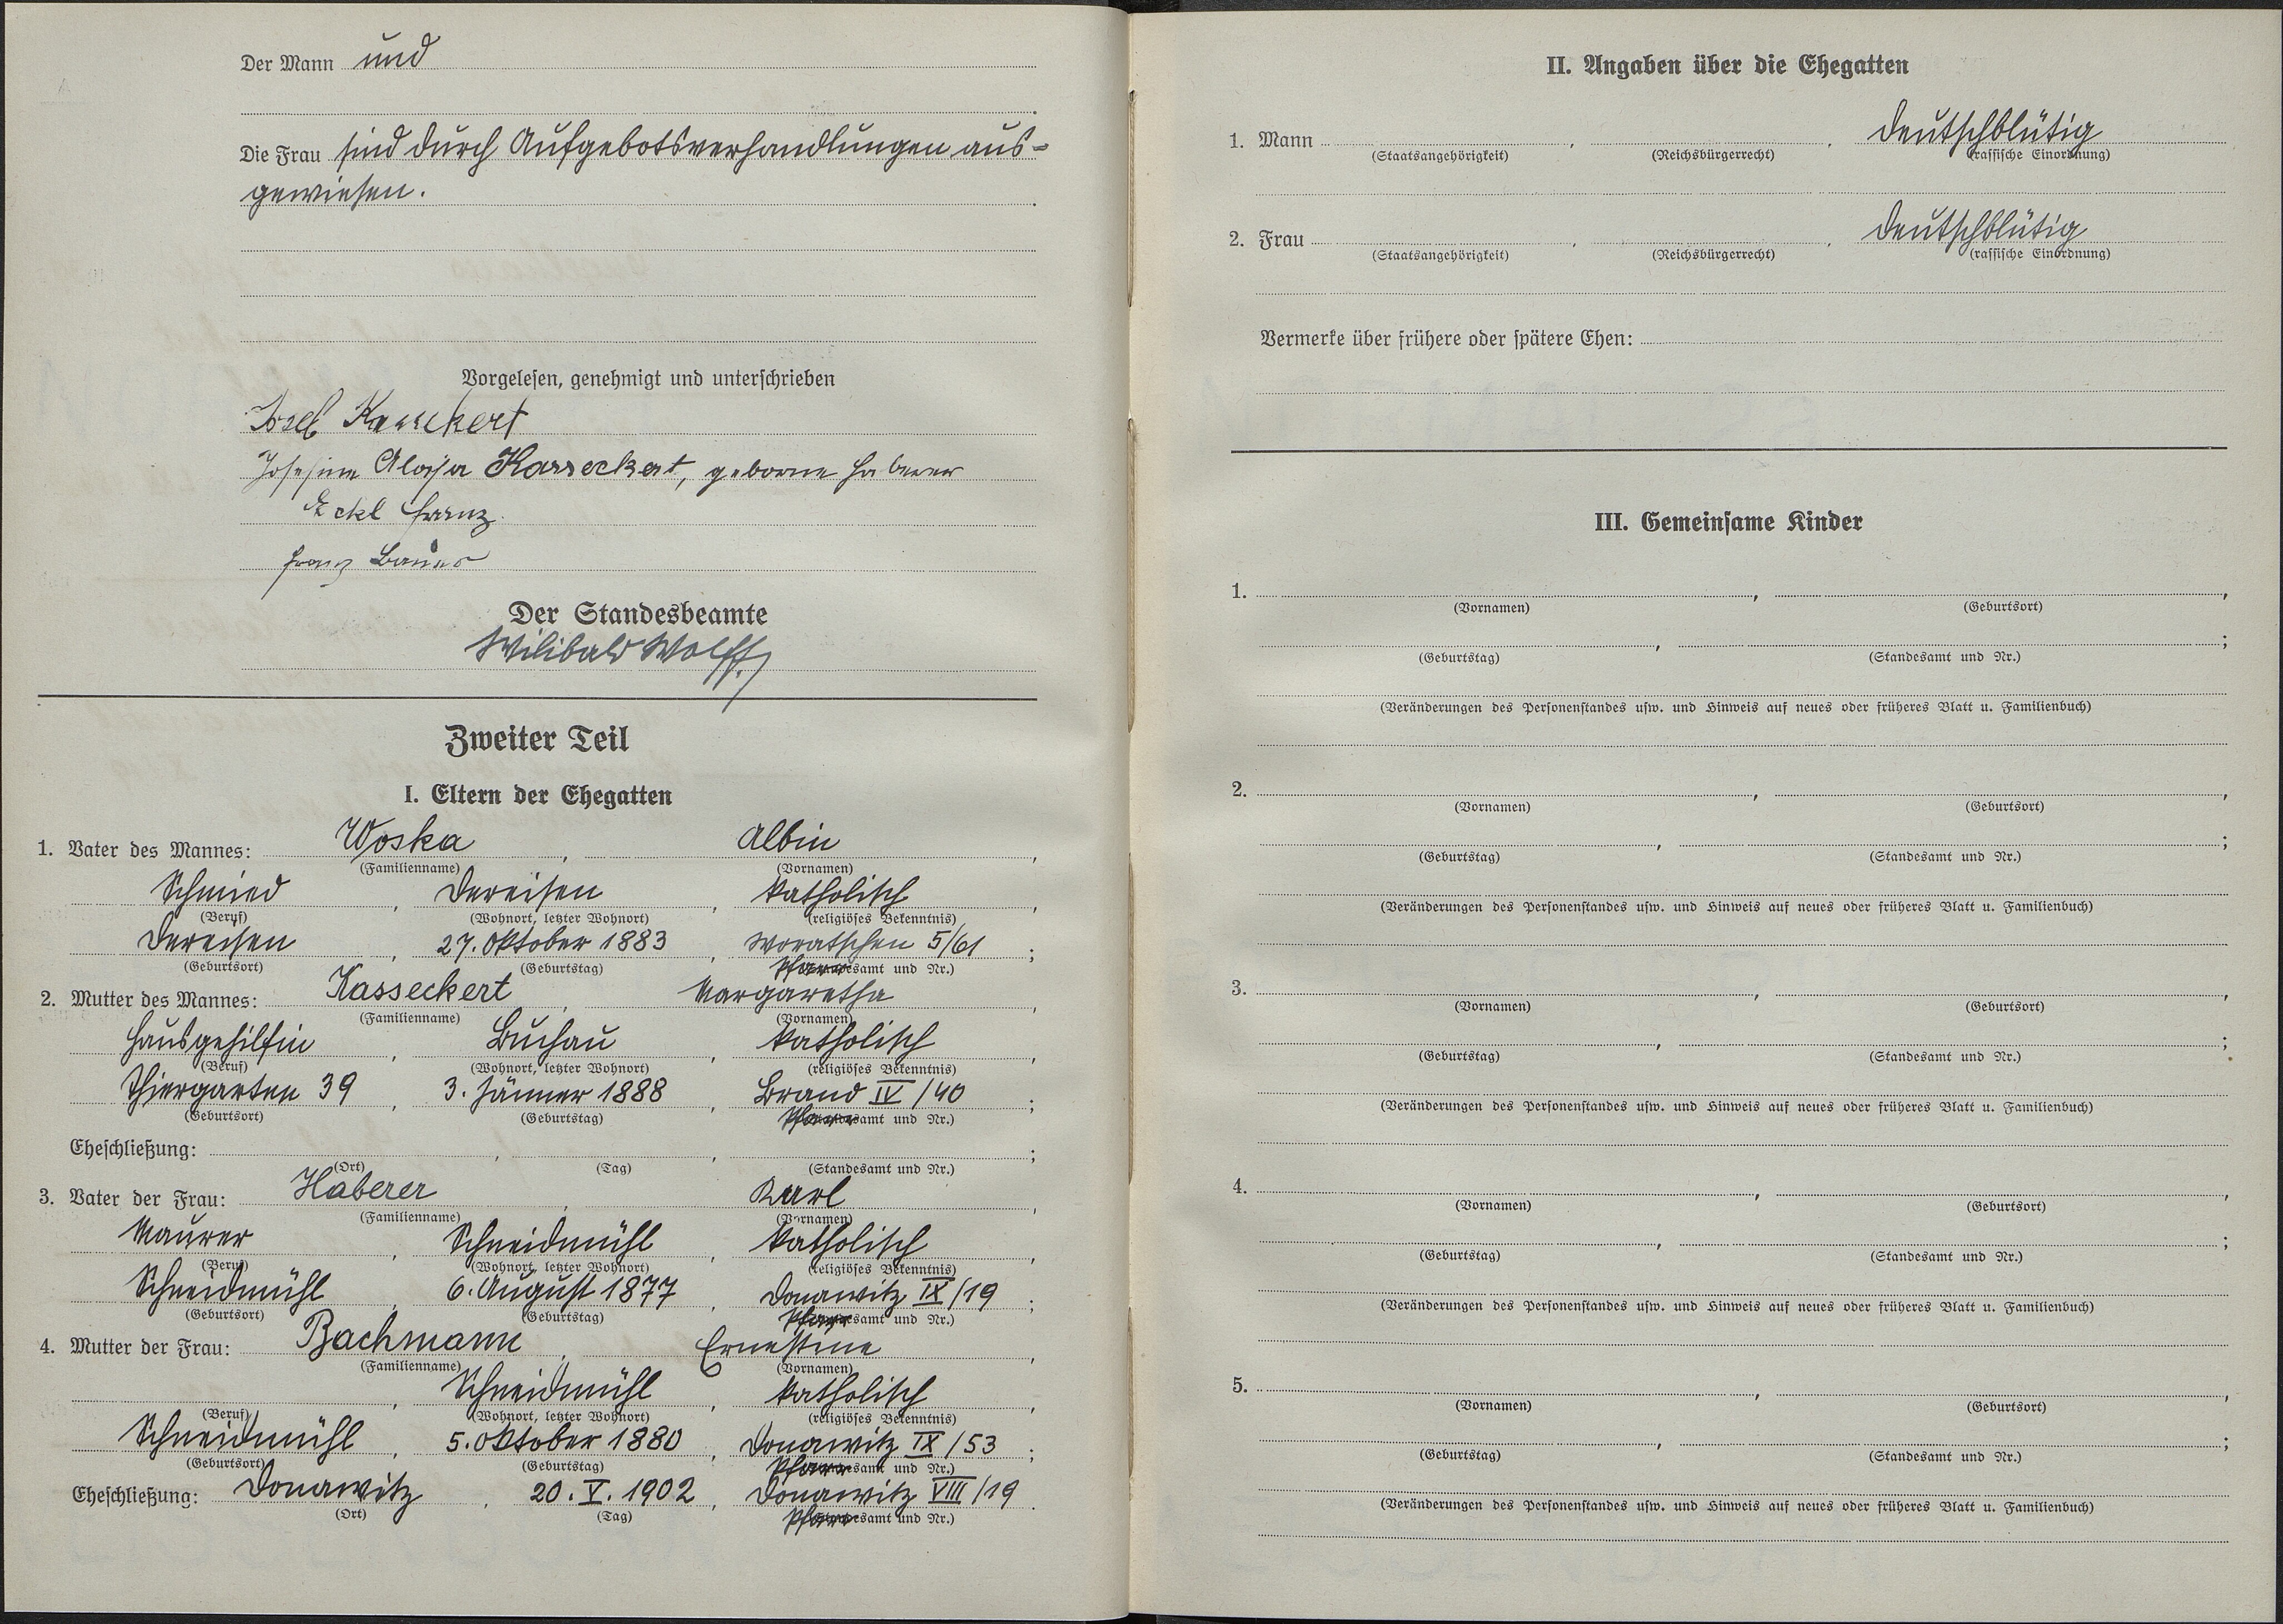 Der Mann und
Die Frau sind durch Aufgebotsverhandlungen aus-
gewiesen.
Vorgelesen, genehmigt und unterschrieben
Josef Kasseckert
Josefine Aloisia Kasseckert, geborne Haberer
Eckl Franz
Franz Bauer
Der Standesbeamte
Wilibald Wolff
Zweiter Teil
I. Eltern der Ehegatten
1. Vater des Mannes: Woska, Albin,
(Familienname) (Vornamen)
Schmied, Dereisen, katholisch,
(Beruf) (Wohnort, letzter Wohnort) (religiöses Bekenntnis)
Dereisen, 27. Oktober 1883, Woratschen 5/61;
(Geburtsort) (Geburtstag) Pfarramt und Nr.)
2. Mutter des Mannes: Kasseckert, Margaretha,
(Familienname) (Vornamen)
Hausgehilfin, Buchau, katholisch,
(Beruf) (Wohnort, letzter Wohnort) (religiöses Bekenntnis)
Thiergarten 39, 3. Jänner 1888, Brand IV/40;
(Geburtsort) (Geburtstag) Pfarramt und Nr.)
Eheschließung: , , ;
(Ort) (Tag) (Standesamt und Nr.)
3. Vater der Frau: Haberer, Karl,
(Familienname) (Vornamen)
Maurer, Schneidmühl, katholisch,
(Beruf) (Wohnort, letzter Wohnort) (religiöses Bekenntnis)
Schneidmühl, 6. August 1877, Donawitz IX/19;
(Geburtsort) (Geburtstag) Pfarramt und Nr.)
4. Mutter der Frau: Bachmann, Ernestine,
(Familienname) (Vornamen)
, Schneidmühl, katholisch,
(Beruf) (Wohnort, letzter Wohnort) (religiöses Bekenntnis)
Schneidmühl, 5. Oktober 1880, Donawitz IX/53;
(Geburtsort) (Geburtstag) Pfarramt und Nr.)
Eheschließung: Donawitz, 20. V. 1902, Donawitz VIII/19.
(Ort) (Tag) Pfarramt und Nr.)
II. Angaben über die Ehegatten
1. Mann , , deutschblütig
(Staatsangehörigkeit) (Reichsbürgerrecht) (rassische Einordnung)
2. Frau , , deutschblütig
(Staatsangehörigkeit) (Reichsbürgerrecht) (rassische Einordnung)
Vermerke über frühere oder spätere Ehen:
III. Gemeinsame Kinder
1. , ,
(Vornamen) (Geburtsort)
, ;
(Geburtstag) (Standesamt und Nr.)
(Veränderungen des Personenstandes usw. und Hinweis auf neues oder früheres Blatt u. Familienbuch)
2. , ,
(Vornamen) (Geburtsort)
, ;
(Geburtstag) (Standesamt und Nr.)
(Veränderungen des Personenstandes usw. und Hinweis auf neues oder früheres Blatt u. Familienbuch)
3. , ,
(Vornamen) (Geburtsort)
, ;
(Geburtstag) (Standesamt und Nr.)
(Veränderungen des Personenstandes usw. und Hinweis auf neues oder früheres Blatt u. Familienbuch)
4. , ,
(Vornamen) (Geburtsort)
, ;
(Geburtstag) (Standesamt und Nr.)
(Veränderungen des Personenstandes usw. und Hinweis auf neues oder früheres Blatt u. Familienbuch)
5. , ,
(Vornamen) (Geburtsort)
, ;
(Geburtstag) (Standesamt und Nr.)
(Veränderungen des Personenstandes usw. und Hinweis auf neues oder früheres Blatt u. Familienbuch)